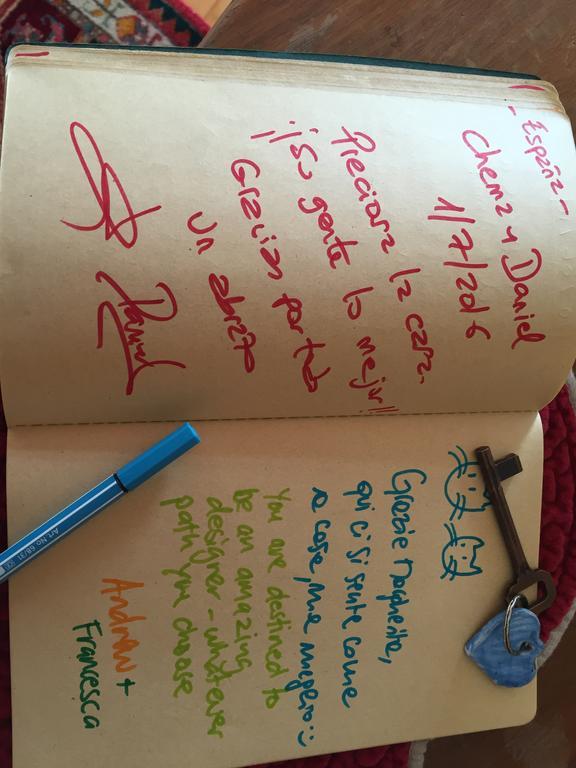 - España -
Chema y Daniel
1/7/2016
Preciosa la casa.
¡¡Su gente lo mejor!!
Gracias por todo
Un abrazo
Daniel
Grazie Margherita,
qui ci si sente come
a casa, ma meglio :)
You are destined to
be an amazing
designer - whatever
path you choose
Andrew +
Francesca
Art No 68/31